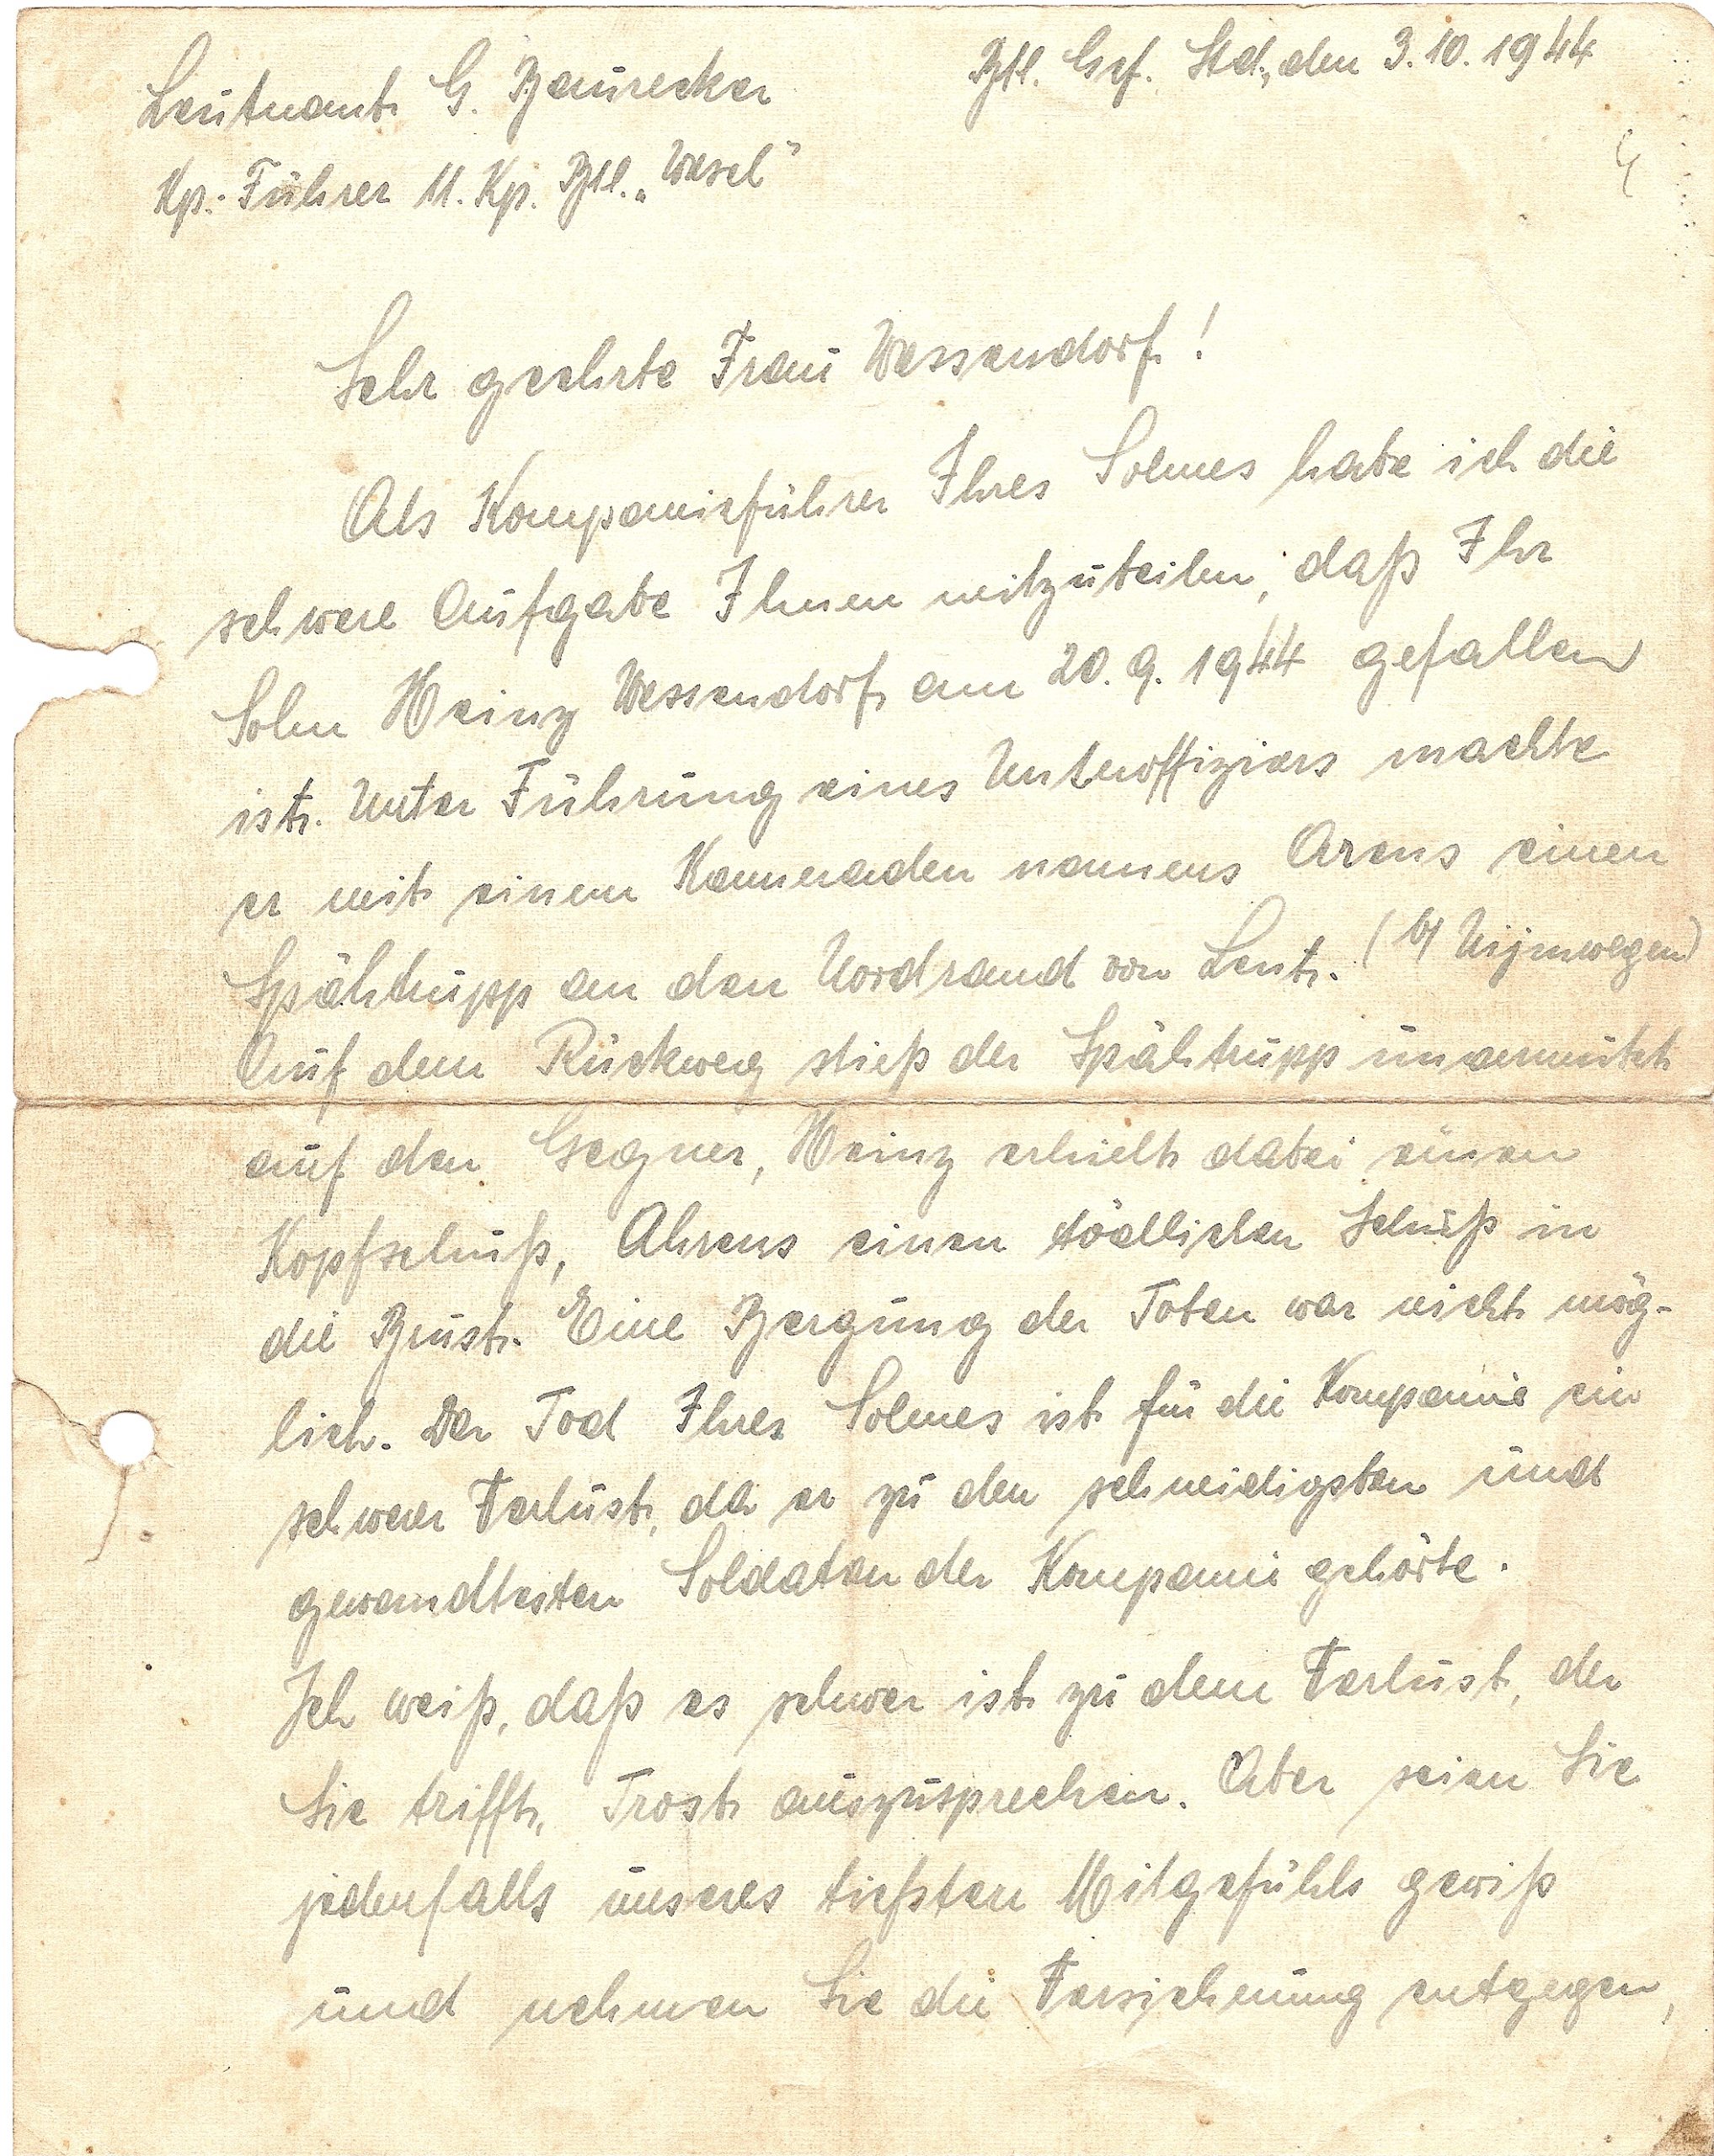 Btl. Gef. Std., den 3.10.1944
Leutnant G. Baurecker
Kp.-Führer 11. Kp. Btl. „Wesel"
Sehr geehrte Frau Wessendorf!
Als Kompanieführer Ihres Sohnes habe ich die
schwere Aufgabe Ihnen mitzuteilen, daß Ihr
Sohn Heinz Wessendorf am 20.9.1944 gefallen
ist. Unter Führung eines Unteroffiziers machte
er mit einem Kameraden namens Arens einen
Spähtrupp an den Nordrand von Lent. (b/ Nijmwegen)
Auf dem Rückweg stieß der Spähtrupp unvermutet
auf den Gegner, Heinz erhielt dabei einen
Kopfschuß, Ahrens einen tödlichen Schuß in
die Brust. Eine Bergung der Toten war nicht mög-
lich. Der Tod Ihres Sohnes ist für die Kompanie ein
schwerer Verlust, da er zu den schneidigsten und
gewandtesten Soldaten der Kompanie gehörte.
Ich weiß, daß es schwer ist zu dem Verlust, der
Sie trifft, Trost auszusprechen. Aber seien Sie
jedenfalls unseres tiefsten Mitgefühls gewiß
und nehmen Sie die Versicherung entgegen,